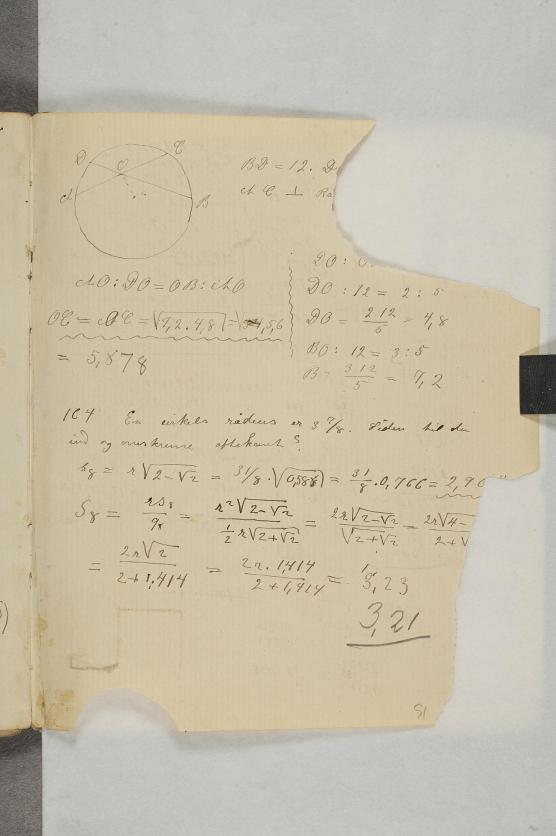 D
O
C
A
B
BD = 12. D
AC ⊥ Ra
AO : DO = OB : AO
DO :
DO : 12 = 2 : 5
DO = 2 12 / 5 = 4,8
OC = AC = √7,2 . 4,8 = 34,56
= 5,878
BO : 12 = 3 : 5
B = 3 12 / 5 = 7,2
164 En cirkels radius er 3 7/8. Siden til den
ind og omskrevne ottekant?
s8 = r√2-√2 = 31/8 . √0,586 = 31/8 . 0,766 = 2,96
S8 = rs8 / q8 = r²√2-√2 / ½ r√2+√2 = 2r√2-√2 / √2+√2 = 2r√4- / 2+√
= 2r√2 / 2+1,414 = 2r. 1,414 / 2+1,414 = 3,23
3,21
91